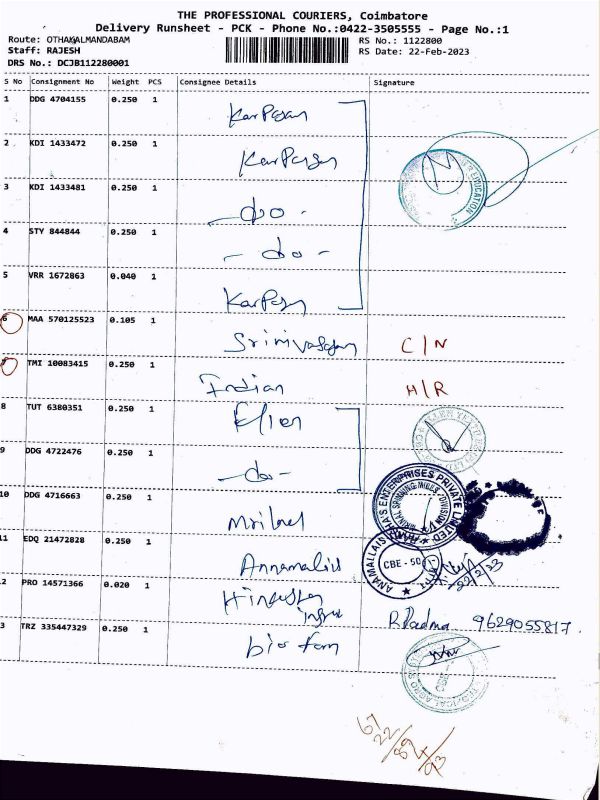 THE PROFESSIONAL COURIERS, Coimbatore
Delivery Runsheet - PCK - Phone No.:0422-3505555 - Page No.:1
Route: OTHAKALMANDABAM RS No.: 1122800
Staff: RAJESH RS Date: 22-Feb-2023
DRS No.: DCJB112280001
S No Consignment No Weight PCS Consignee Details Signature
1 DDG 4704155 0.250 1 Karpagam
2 KDI 1433472 0.250 1 Karpagam
3 KDI 1433481 0.250 1 -do-
4 STY 844844 0.250 1 -do-
5 VRR 1672863 0.040 1 Karpagam
6 MAA 570125523 0.105 1 Srinivasan C/N
7 TMI 10083415 0.250 1 Indian H/R
8 TUT 6380351 0.250 1
9 DDG 4722476 0.250 1 -do-
10 DDG 4716663 0.250 1
11 EDQ 21472828 0.250 1
2 PRO 14571366 0.020 1 R Padma 9629055817
3 TRZ 335447329 0.250 1 bio fam
ENTERPRISES PRIVATE LIMITED
CBE - 50
22/2/23